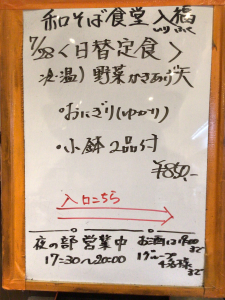 和そば食堂 入福
いりふく
7/28 <日替定食>
冷(温) 野菜かきあげ天
・おにぎり(ゆかり)
・小鉢 2品付
¥850.-
入口こちら
夜の部 営業中
17:30〜20:00
お酒は19:00まで
1グループ4名様まで